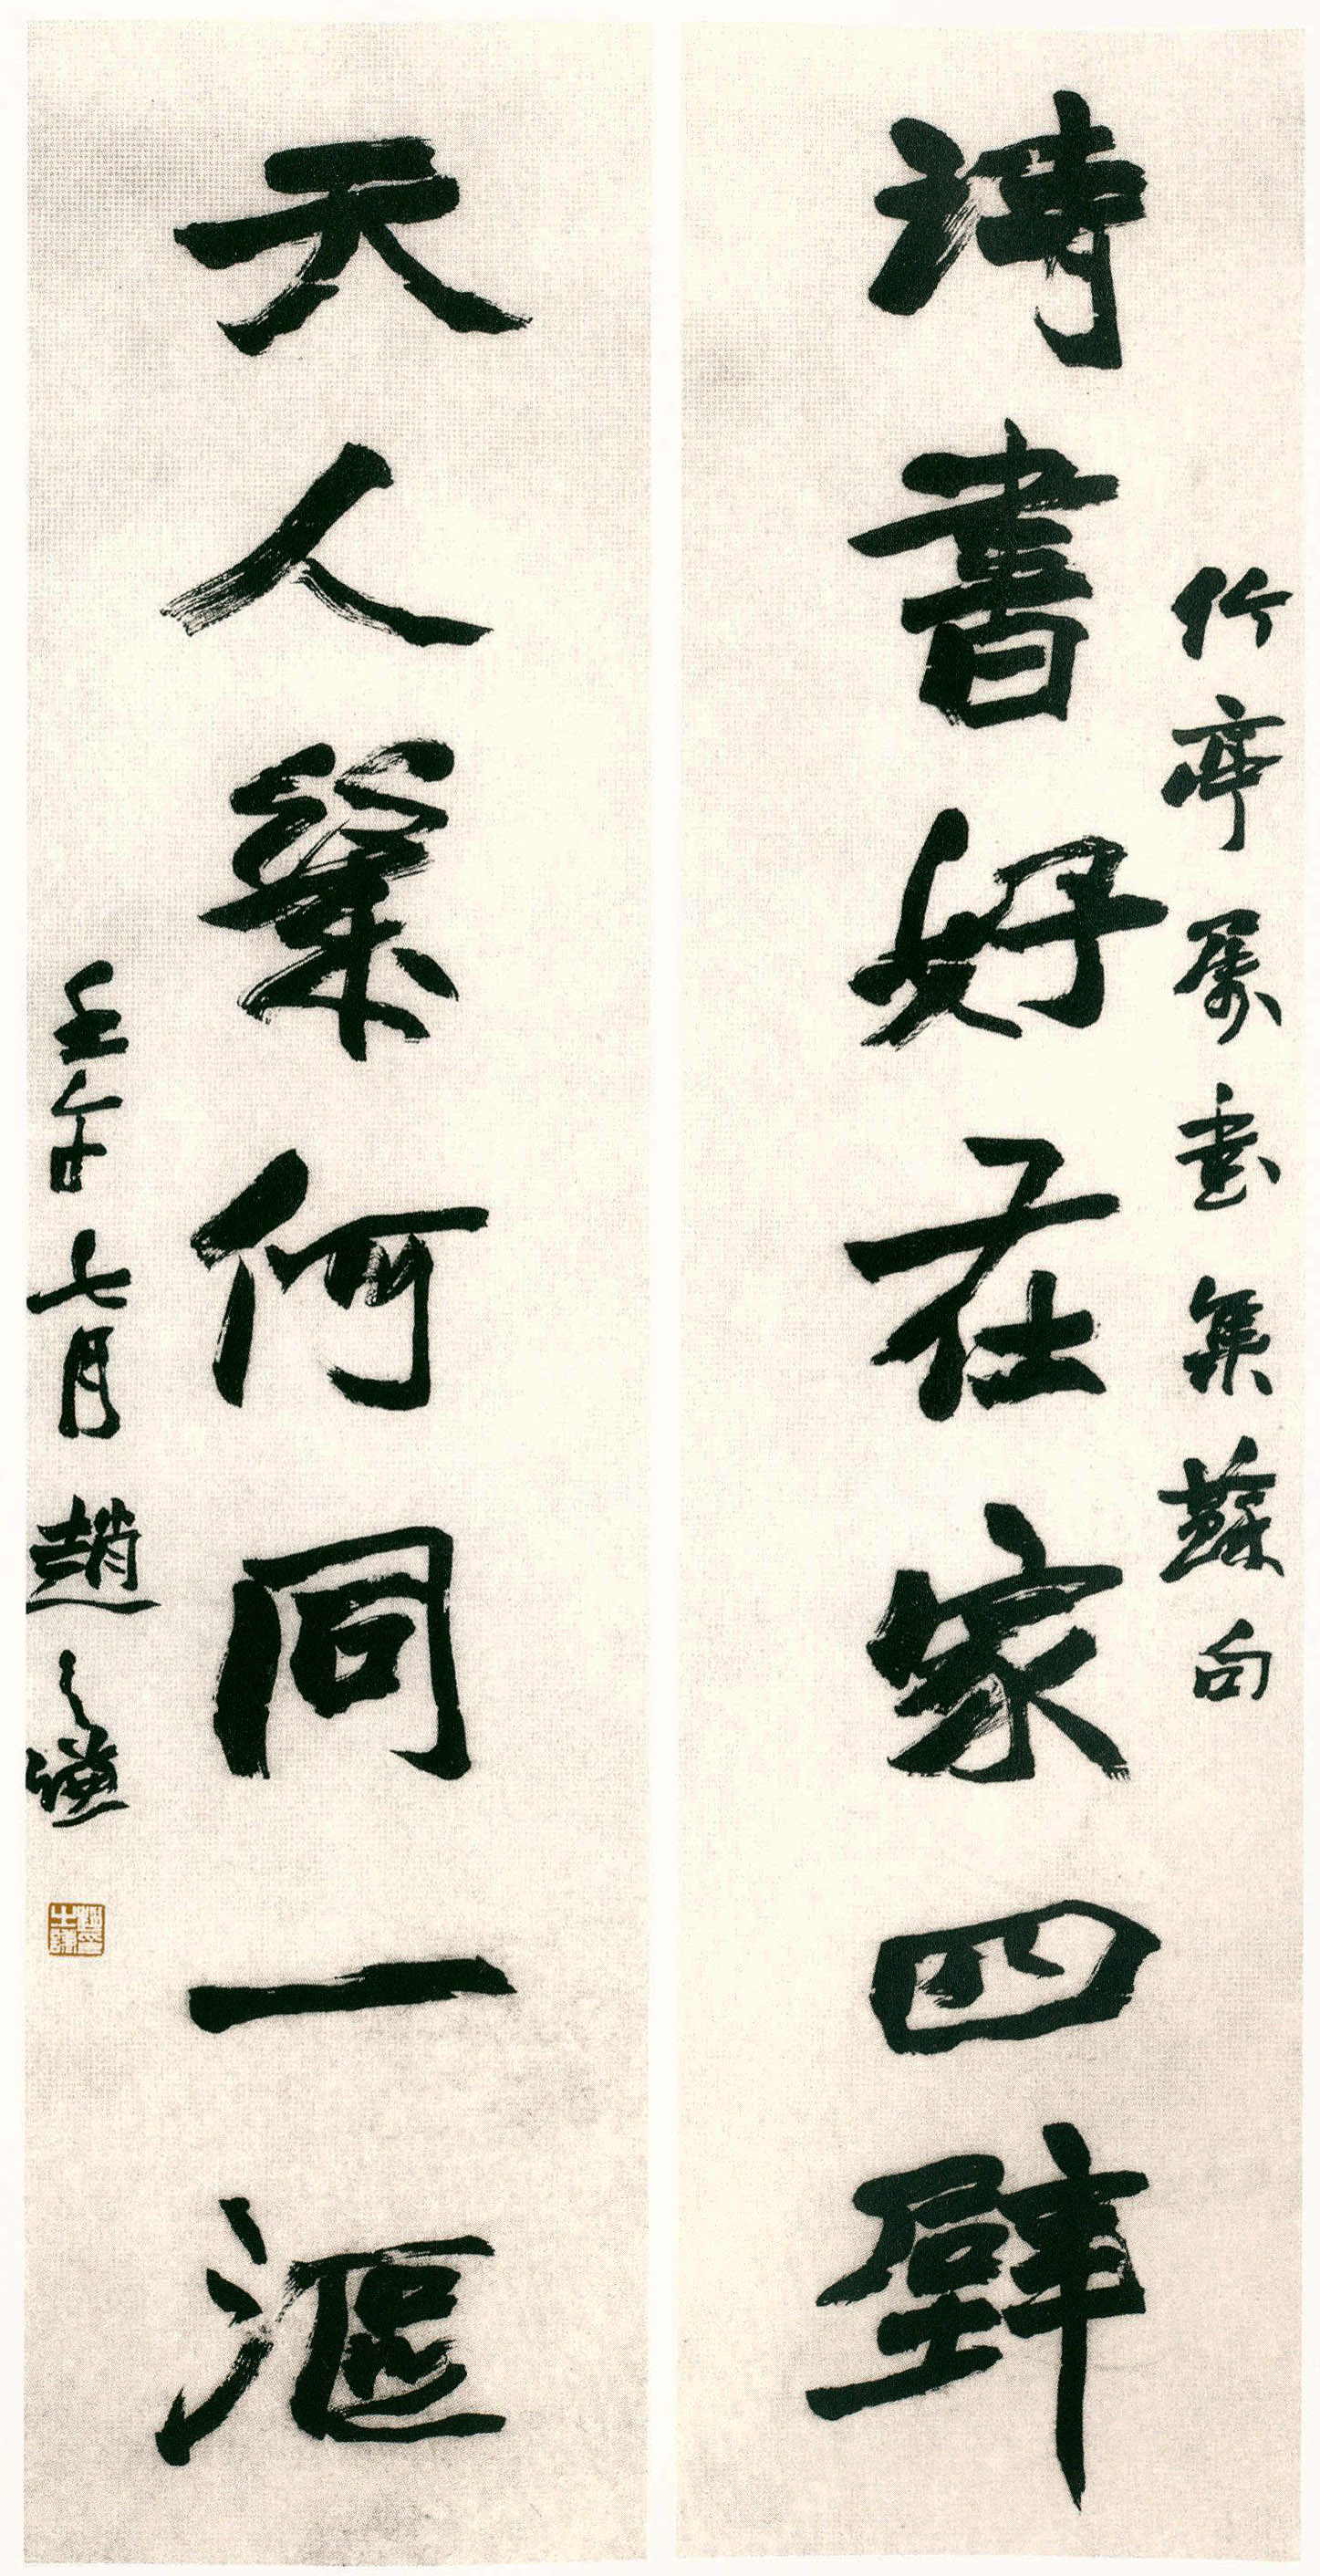 竹亭屬書集蘇句
詩書好在家四壁
天人幾何同一漚
壬午七月趙之謙